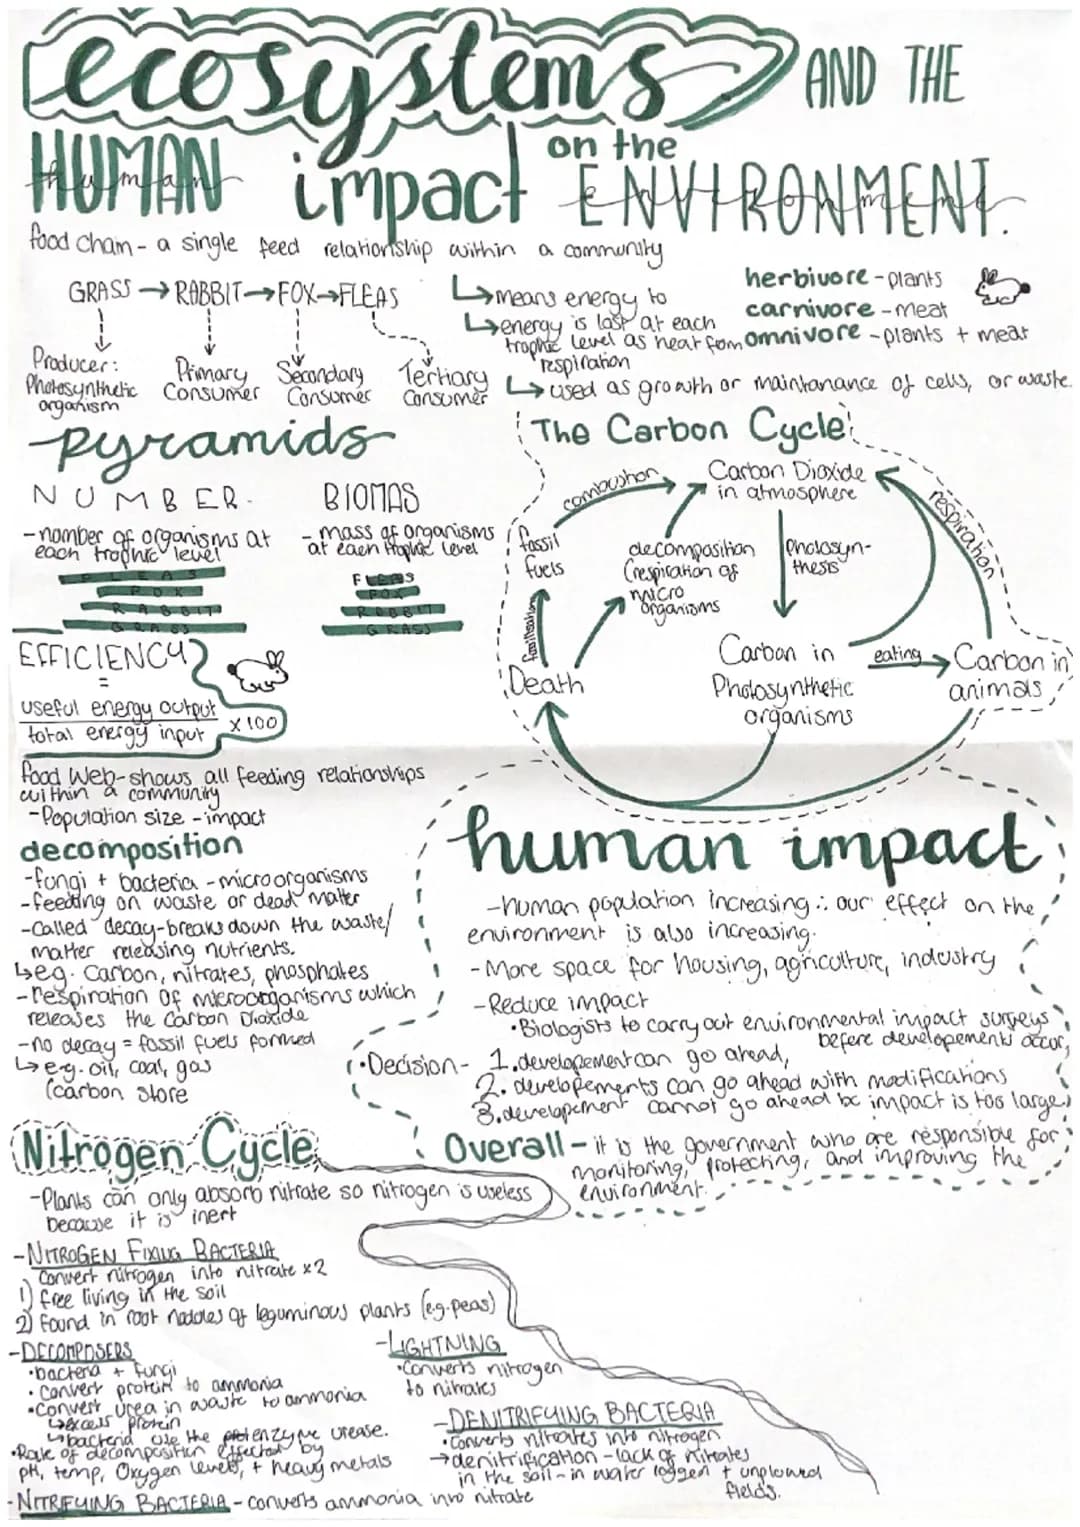 ecosystems AND THE
HUMAN impact on the ENVIRONMENT.
human environment
food chain - a single feed relationship within a community
GRASS → RABBIT → FOX → FLEAS
Producer: Photosynthetic organism
Primary Consumer
Secondary Consumer
Tertiary Consumer
↳ means energy to
↳ energy is lost at each
trophic level as heat from
respiration
↳ used as growth or maintanance of cells, or waste.
herbivore - plants
carnivore - meat
omnivore - plants + meat
pyramids
NUMBER.
- number of organisms at
each trophic level
FLEAS
FOX
RABBIT
GRASS
BIOMAS
- mass of organisms
at each trophic level
FLEAS
FOX
RABBIT
GRASS
EFFICIENCY
=
useful energy output
total energy input
x 100
The Carbon Cycle
combustion
Carbon Dioxide
in atmosphere
respiration
fossil
fuels
decomposition
(respiration of
micro
organisms
Photosyn-
thesis
fossilisation
Death
Carbon in
Photosynthetic
organisms
eating
Carbon in
animals
food Web - shows all feeding relationships
within a community
- Population size - impact
decomposition
- fungi + bacteria - microorganisms
- feeding on waste or dead matter
- Called decay - breaks down the waste/
matter releasing nutrients.
↳ eg. Carbon, nitrates, phosphates
- respiration of microorganisms which
releases the Carbon Dioxide
- no decay = fossil fuels formed
↳ e.g. oil, coal, gas
(carbon store
human impact
- human population increasing ∴ our effect on the
environment is also increasing.
- More space for housing, agriculture, industry
- Reduce impact
• Biologists to carry out environmental impact surveys
before developements occur,
• Decision - 1. developement can go ahead,
2. developements can go ahead with modifications
3. developement cannot go ahead bc impact is too large
Overall - it is the government who are responsible for
monitoring, protecting, and improving the
environment.
Nitrogen Cycle
- Plants can only absorb nitrate so nitrogen is useless
because it is inert
- NITROGEN FIXING BACTERIA
Convert nitrogen into nitrate x2
1) free living in the soil
2) Found in root noddles of leguminous plants (e.g. peas)
- DECOMPOSERS
• bacteria + fungi
• Convert protein to ammonia
• Convert urea in waste to ammonia
↳ excess protein
↳ bacteria use the enzyme urease.
• Rate of decomposition effected by
pH, temp, Oxygen levels, + heavy metals
- NITRIFYING BACTERIA - converts ammonia into nitrate
- LIGHTNING
• Converts nitrogen
to nitrates
- DENITRIFYING BACTERIA
• Converts nitrates into nitrogen
→ denitrification - lack of nitrates
in the soil - in water logged + unplowed
fields.